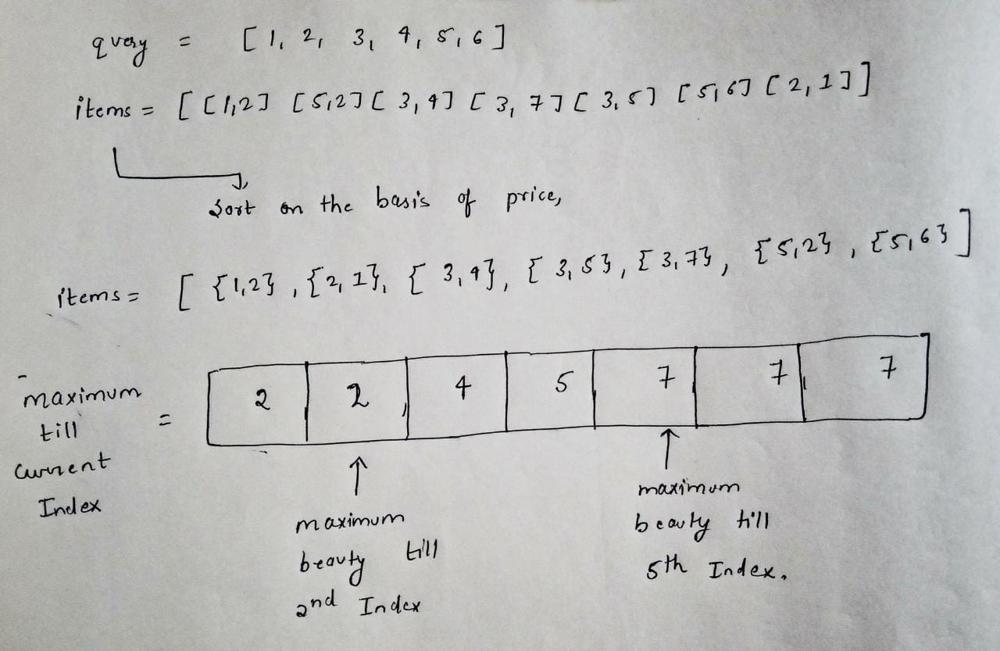 query = [1, 2, 3, 4, 5, 6]
items = [[1,2] [5,2][3,4] [3,7][3,5] [5,6][2,1]]
Sort on the basis of price,
items = [{1,2}, {2,1}, {3,4}, {3,5}, {3,7}, {5,2}, {5,6}]
maximum
till
current
Index
=
2 2, 4 5 7 7, 7
maximum
beauty till
2nd Index
maximum
beauty till
5th Index.